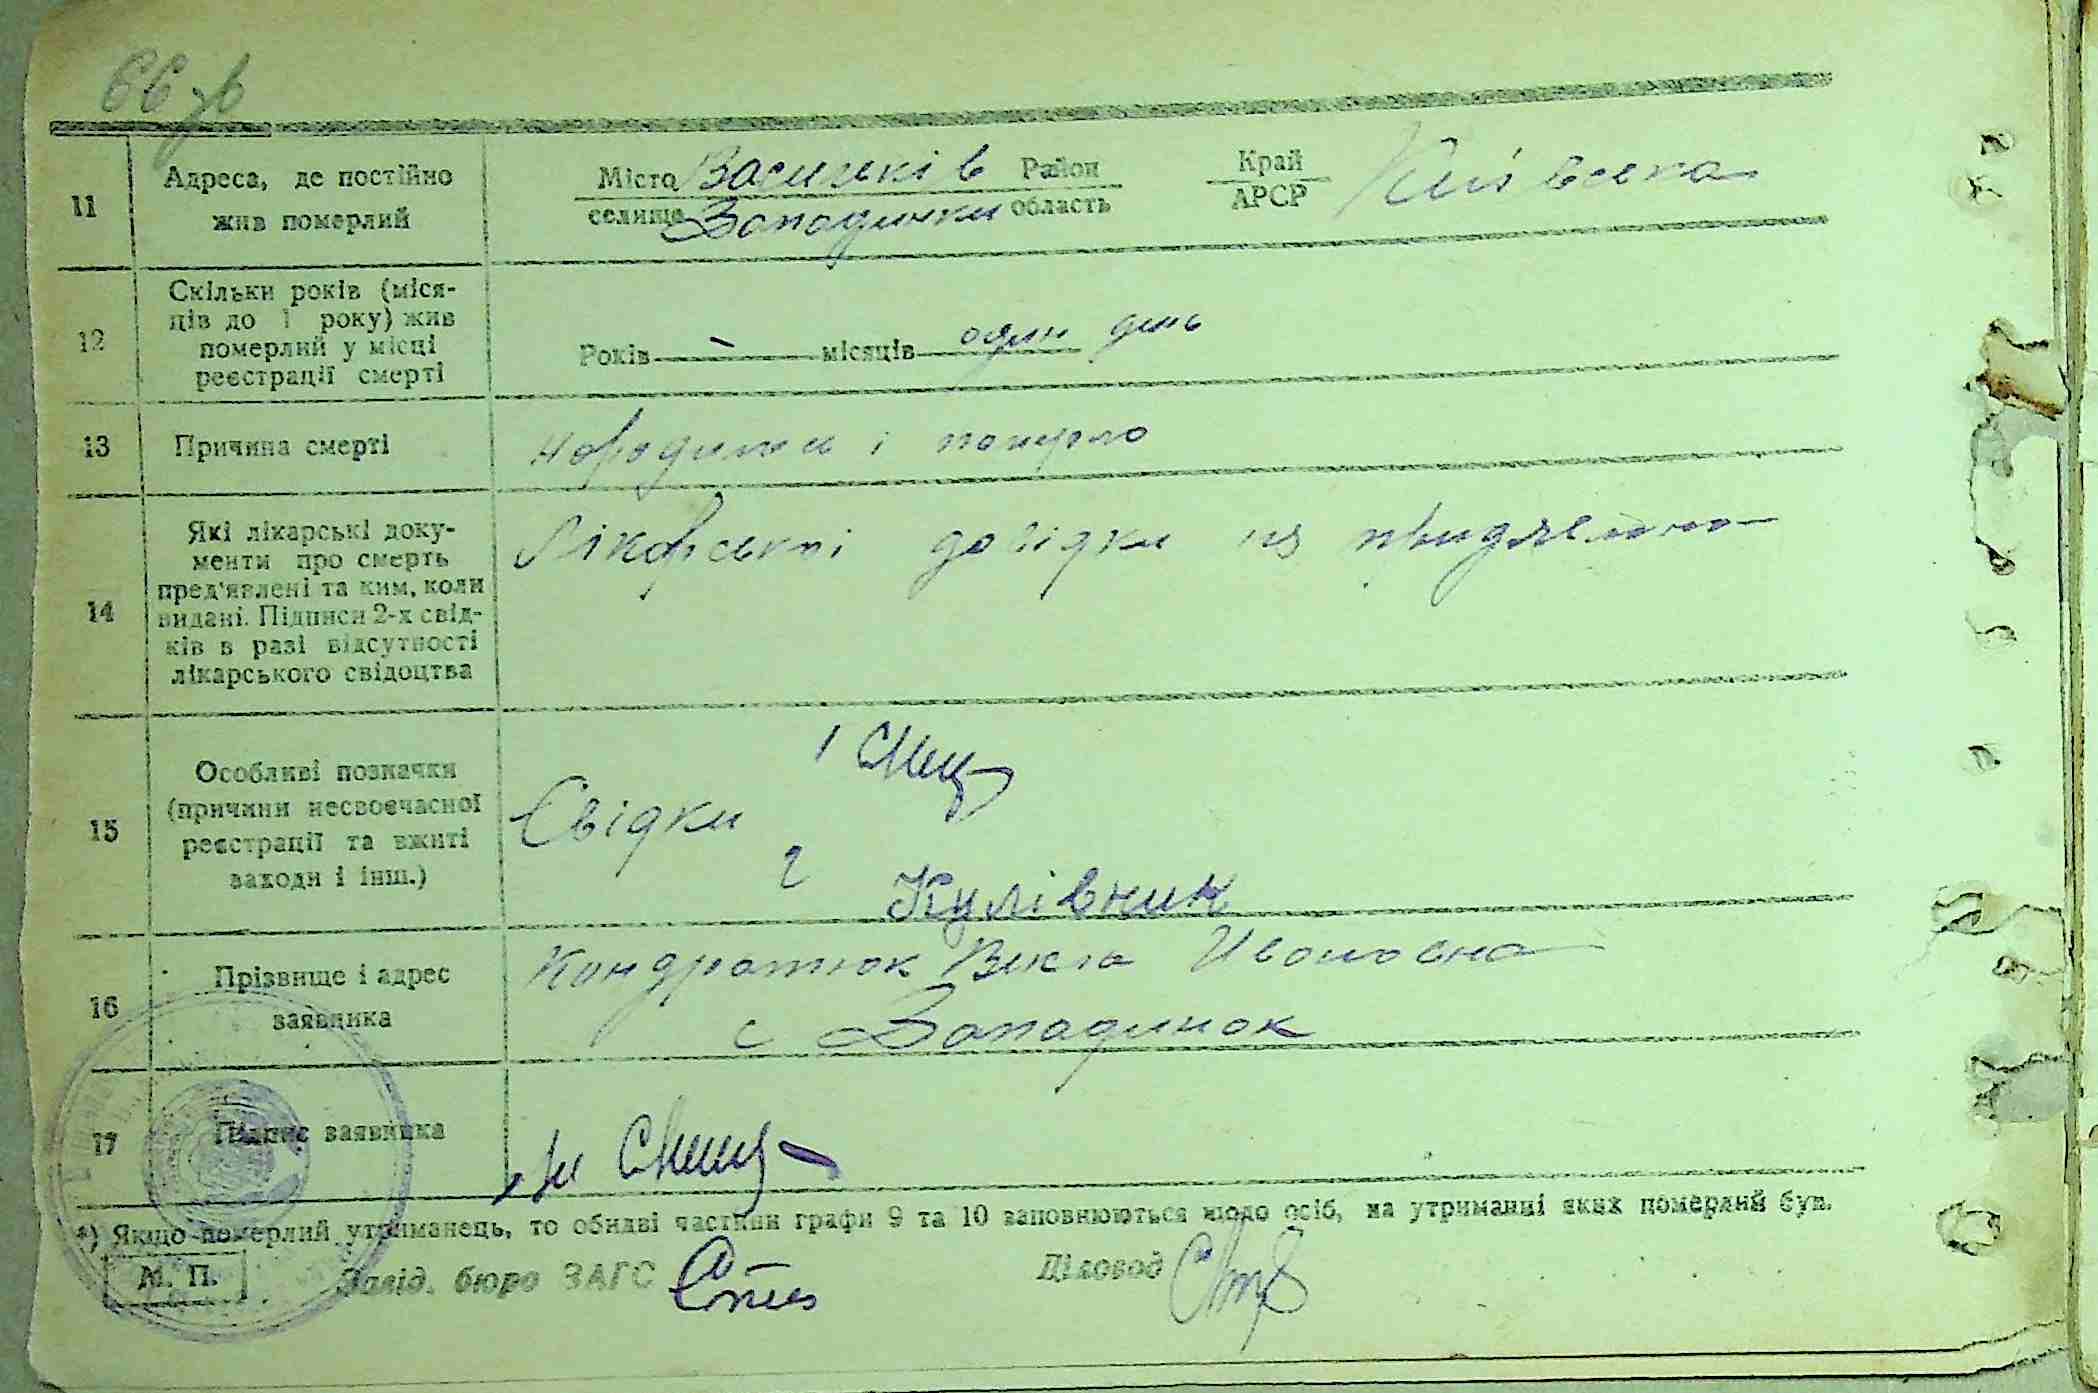 66 зв
11 Адреса, де постійно жив померлий
Місто Васильків Район Край Київська
селище Западинки область АРСР
12 Скільки років (міся-
ців до 1 року) жив
померлий у місці
реєстрації смерті
Років - місяців один день
13 Причина смерті
народилось і померло
14 Які лікарські доку-
менти про смерть
пред'явлені та ким, коли
видані. Підписи 2-х свід-
ків в разі відсутності
лікарського свідоцтва
Лікарські довідки не
15 Особливі позначки
(причини несвоєчасної
реєстрації та вжиті
заходи і інш.)
1
Свідки
2 Кулівник
16 Прізвище і адрес
заявника
Кондратюк Векла Ивановна
с Западинок
17 Підпис заявника
*) Якщо померлий утриманець, то обидві частини графи 9 та 10 заповнюються щодо осіб, на утриманні яких померлий був.
М. П. Завід. бюро ЗАГС Діловод